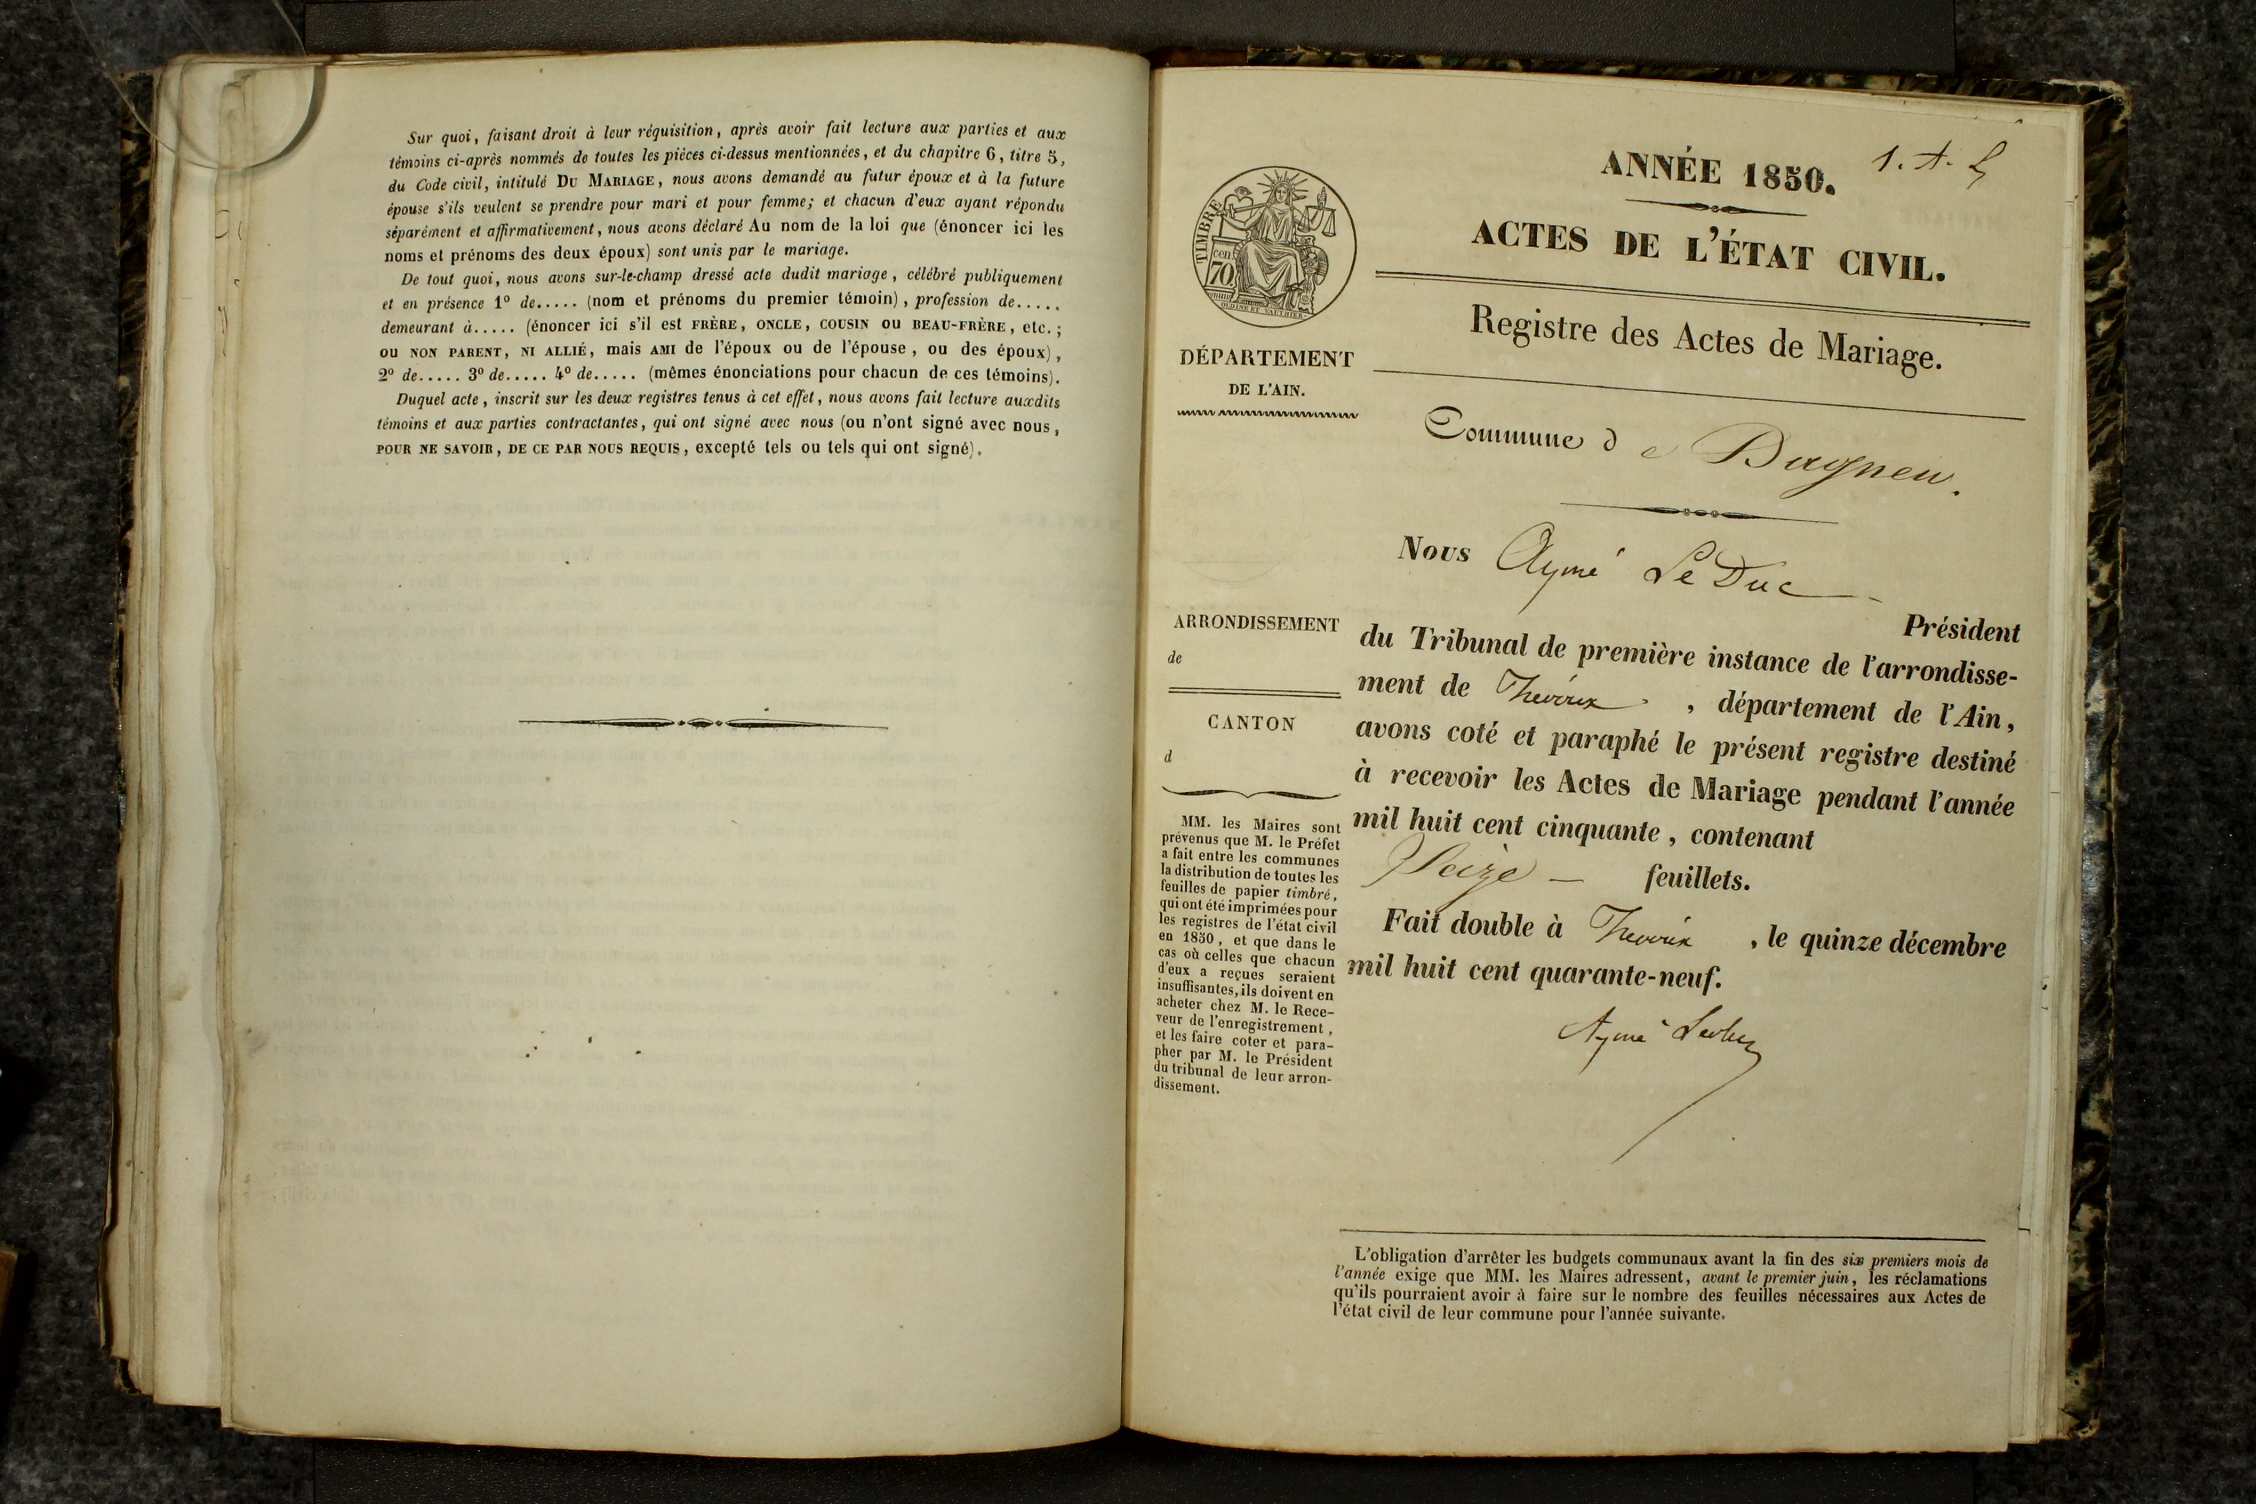 Sur quoi, faisant droit à leur réquisition, après avoir fait lecture aux parties et aux
témoins ci-après nommés de toutes les pièces ci-dessus mentionnées, et du chapitre 6, titre 5,
du Code civil, intitulé DU MARIAGE, nous avons demandé au futur époux et à la future
épouse s'ils veulent se prendre pour mari et pour femme; et chacun d'eux ayant répondu
séparément et affirmativement, nous avons déclaré Au nom de la loi que (énoncer ici les
noms et prénoms des deux époux) sont unis par le mariage.
De tout quoi, nous avons sur-le-champ dressé acte dudit mariage, célébré publiquement
et en présence 1º de..... (nom et prénoms du premier témoin), profession de.....
demeurant à..... (énoncer ici s'il est FRÈRE, ONCLE, COUSIN OU BEAU-FRÈRE, etc.;
OU NON PARENT, NI ALLIÉ, mais AMI de l'époux ou de l'épouse, ou des époux),
2º de..... 3º de..... 4º de..... (mêmes énonciations pour chacun de ces témoins).
Duquel acte, inscrit sur les deux registres tenus à cet effet, nous avons fait lecture auxdits
témoins et aux parties contractantes, qui ont signé avec nous (ou n'ont signé avec nous,
POUR NE SAVOIR, DE CE PAR NOUS REQUIS, excepté tels ou tels qui ont signé).
1. A. L
ANNÉE 1850.
ACTES DE L'ÉTAT CIVIL.
Registre des Actes de Mariage.
TIMBRE
cen
70
DÉPARTEMENT
DE L'AIN.
Commune de Dagneu.
Nous Aymé Le Duc
Président
du Tribunal de première instance de l'arrondisse-
ment de Trévoux, département de l'Ain,
avons coté et paraphé le présent registre destiné
à recevoir les Actes de Mariage pendant l'année
mil huit cent cinquante, contenant
Seize — feuillets.
Fait double à Trévoux, le quinze décembre
mil huit cent quarante-neuf.
Aymé Leduc
ARRONDISSEMENT
de
CANTON
d
MM. les Maires sont
prévenus que M. le Préfet
a fait entre les communes
la distribution de toutes les
feuilles de papier timbré,
qui ont été imprimées pour
les registres de l'état civil
en 1850, et que dans le
cas où celles que chacun
d'eux a reçues seraient
insuffisantes, ils doivent en
acheter chez M. le Rece-
veur de l'enregistrement,
et les faire coter et para-
pher par M. le Président
du tribunal de leur arron-
dissement.
L'obligation d'arrêter les budgets communaux avant la fin des six premiers mois de
l'année exige que MM. les Maires adressent, avant le premier juin, les réclamations
qu'ils pourraient avoir à faire sur le nombre des feuilles nécessaires aux Actes de
l'état civil de leur commune pour l'année suivante.